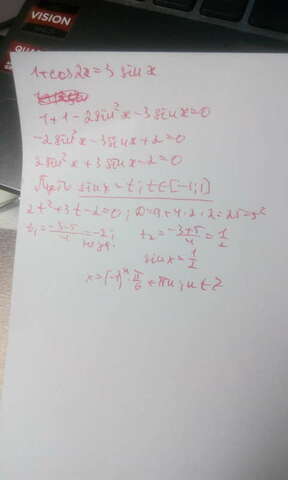 VISION
1+cos2x=3 sinx
1+1-2sin²x-3sinx=0
-2sin²x-3sinx+2=0
2sin²x+3sinx-2=0
Пусть sinx=t; t∈[-1;1]
2t²+3t-2=0; D=9+4·2·2=25=5²
t₁=(-3-5)/4=-2; t₂=(-3+5)/4=1/2
не уд.
sinx=1/2
x=(-1)ⁿ·π/6+πn; n∈Z